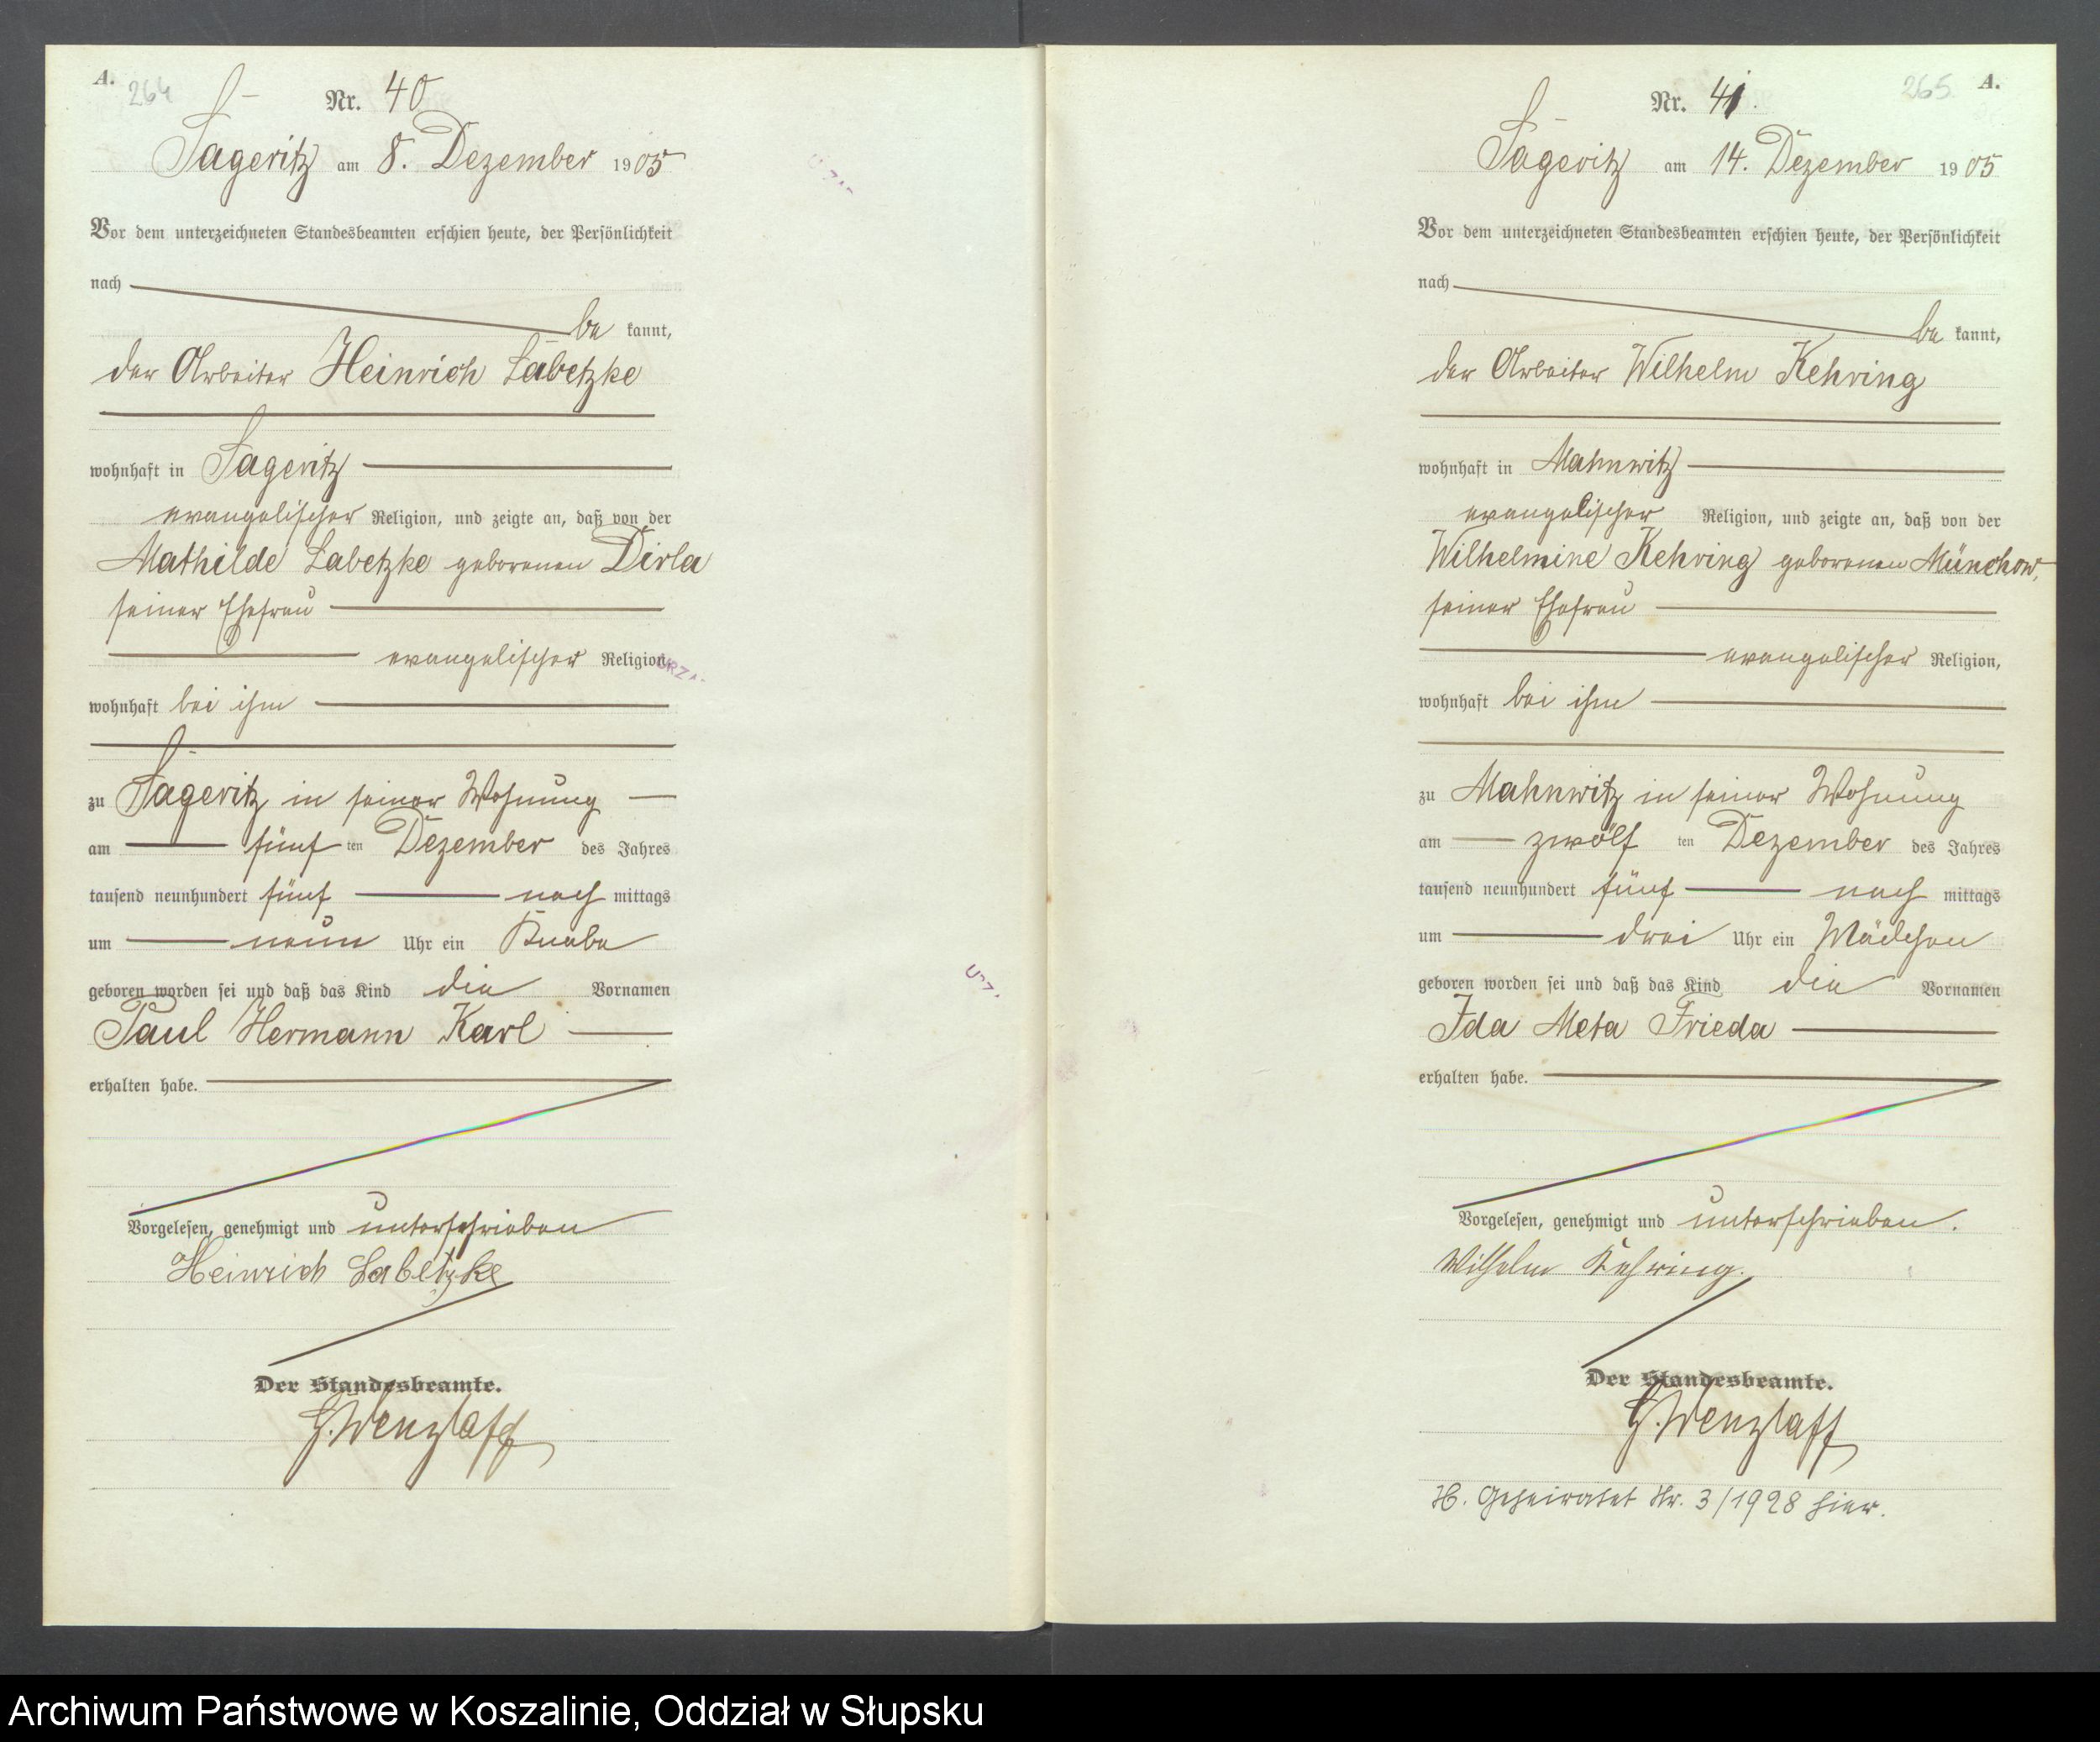 A.
264
Nr. 40
Sageritz am 8. Dezember 1905
Vor dem unterzeichneten Standesbeamten erschien heute, der Persönlichkeit
nach
be kannt,
der Arbeiter Heinrich Labetzke
wohnhaft in Sageritz
evangelischer Religion, und zeigte an, daß von der
Mathilde Labetzke geborenen Dirla
seiner Ehefrau
evangelischer Religion,
wohnhaft bei ihm
zu Sageritz in seiner Wohnung
am fünf ten Dezember des Jahres
tausend neunhundert fünf nach mittags
um neun Uhr ein Knabe
geboren worden sei und daß das Kind die Vornamen
Paul Hermann Karl
erhalten habe.
Vorgelesen, genehmigt und unterschrieben
Heinrich Labetzke
Der Standesbeamte.
G. Wenzlaff
265
A.
Nr. 41.
Sageritz am 14. Dezember 1905
Vor dem unterzeichneten Standesbeamten erschien heute, der Persönlichkeit
nach
be kannt,
der Arbeiter Wilhelm Kehring
wohnhaft in Mahnwitz
evangelischer Religion, und zeigte an, daß von der
Wilhelmine Kehring geborenen Münchow,
seiner Ehefrau
evangelischer Religion,
wohnhaft bei ihm
zu Mahnwitz in seiner Wohnung
am zwölf ten Dezember des Jahres
tausend neunhundert fünf nach mittags
um drei Uhr ein Mädchen
geboren worden sei und daß das Kind die Vornamen
Ida Meta Frieda
erhalten habe.
Vorgelesen, genehmigt und unterschrieben.
Wilhelm Kehring.
Der Standesbeamte.
G. Wenzlaff
H. Geheiratet Nr. 3/1928 hier.
Archiwum Państwowe w Koszalinie, Oddział w Słupsku